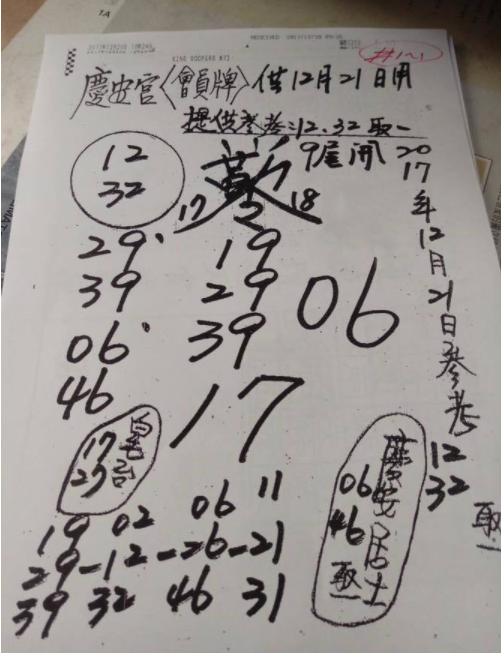 慶安宮〈會員牌〉供12月21日用
提供參考:12.32取一
12
32
9尾開
17 18
2017年12月21日參考
12
32
取一
29
39
06
46
19
29
39
06
17
17
27
慶安居士
06
46
取一
19 02 06 11
29-12-26-21
39 32 46 31